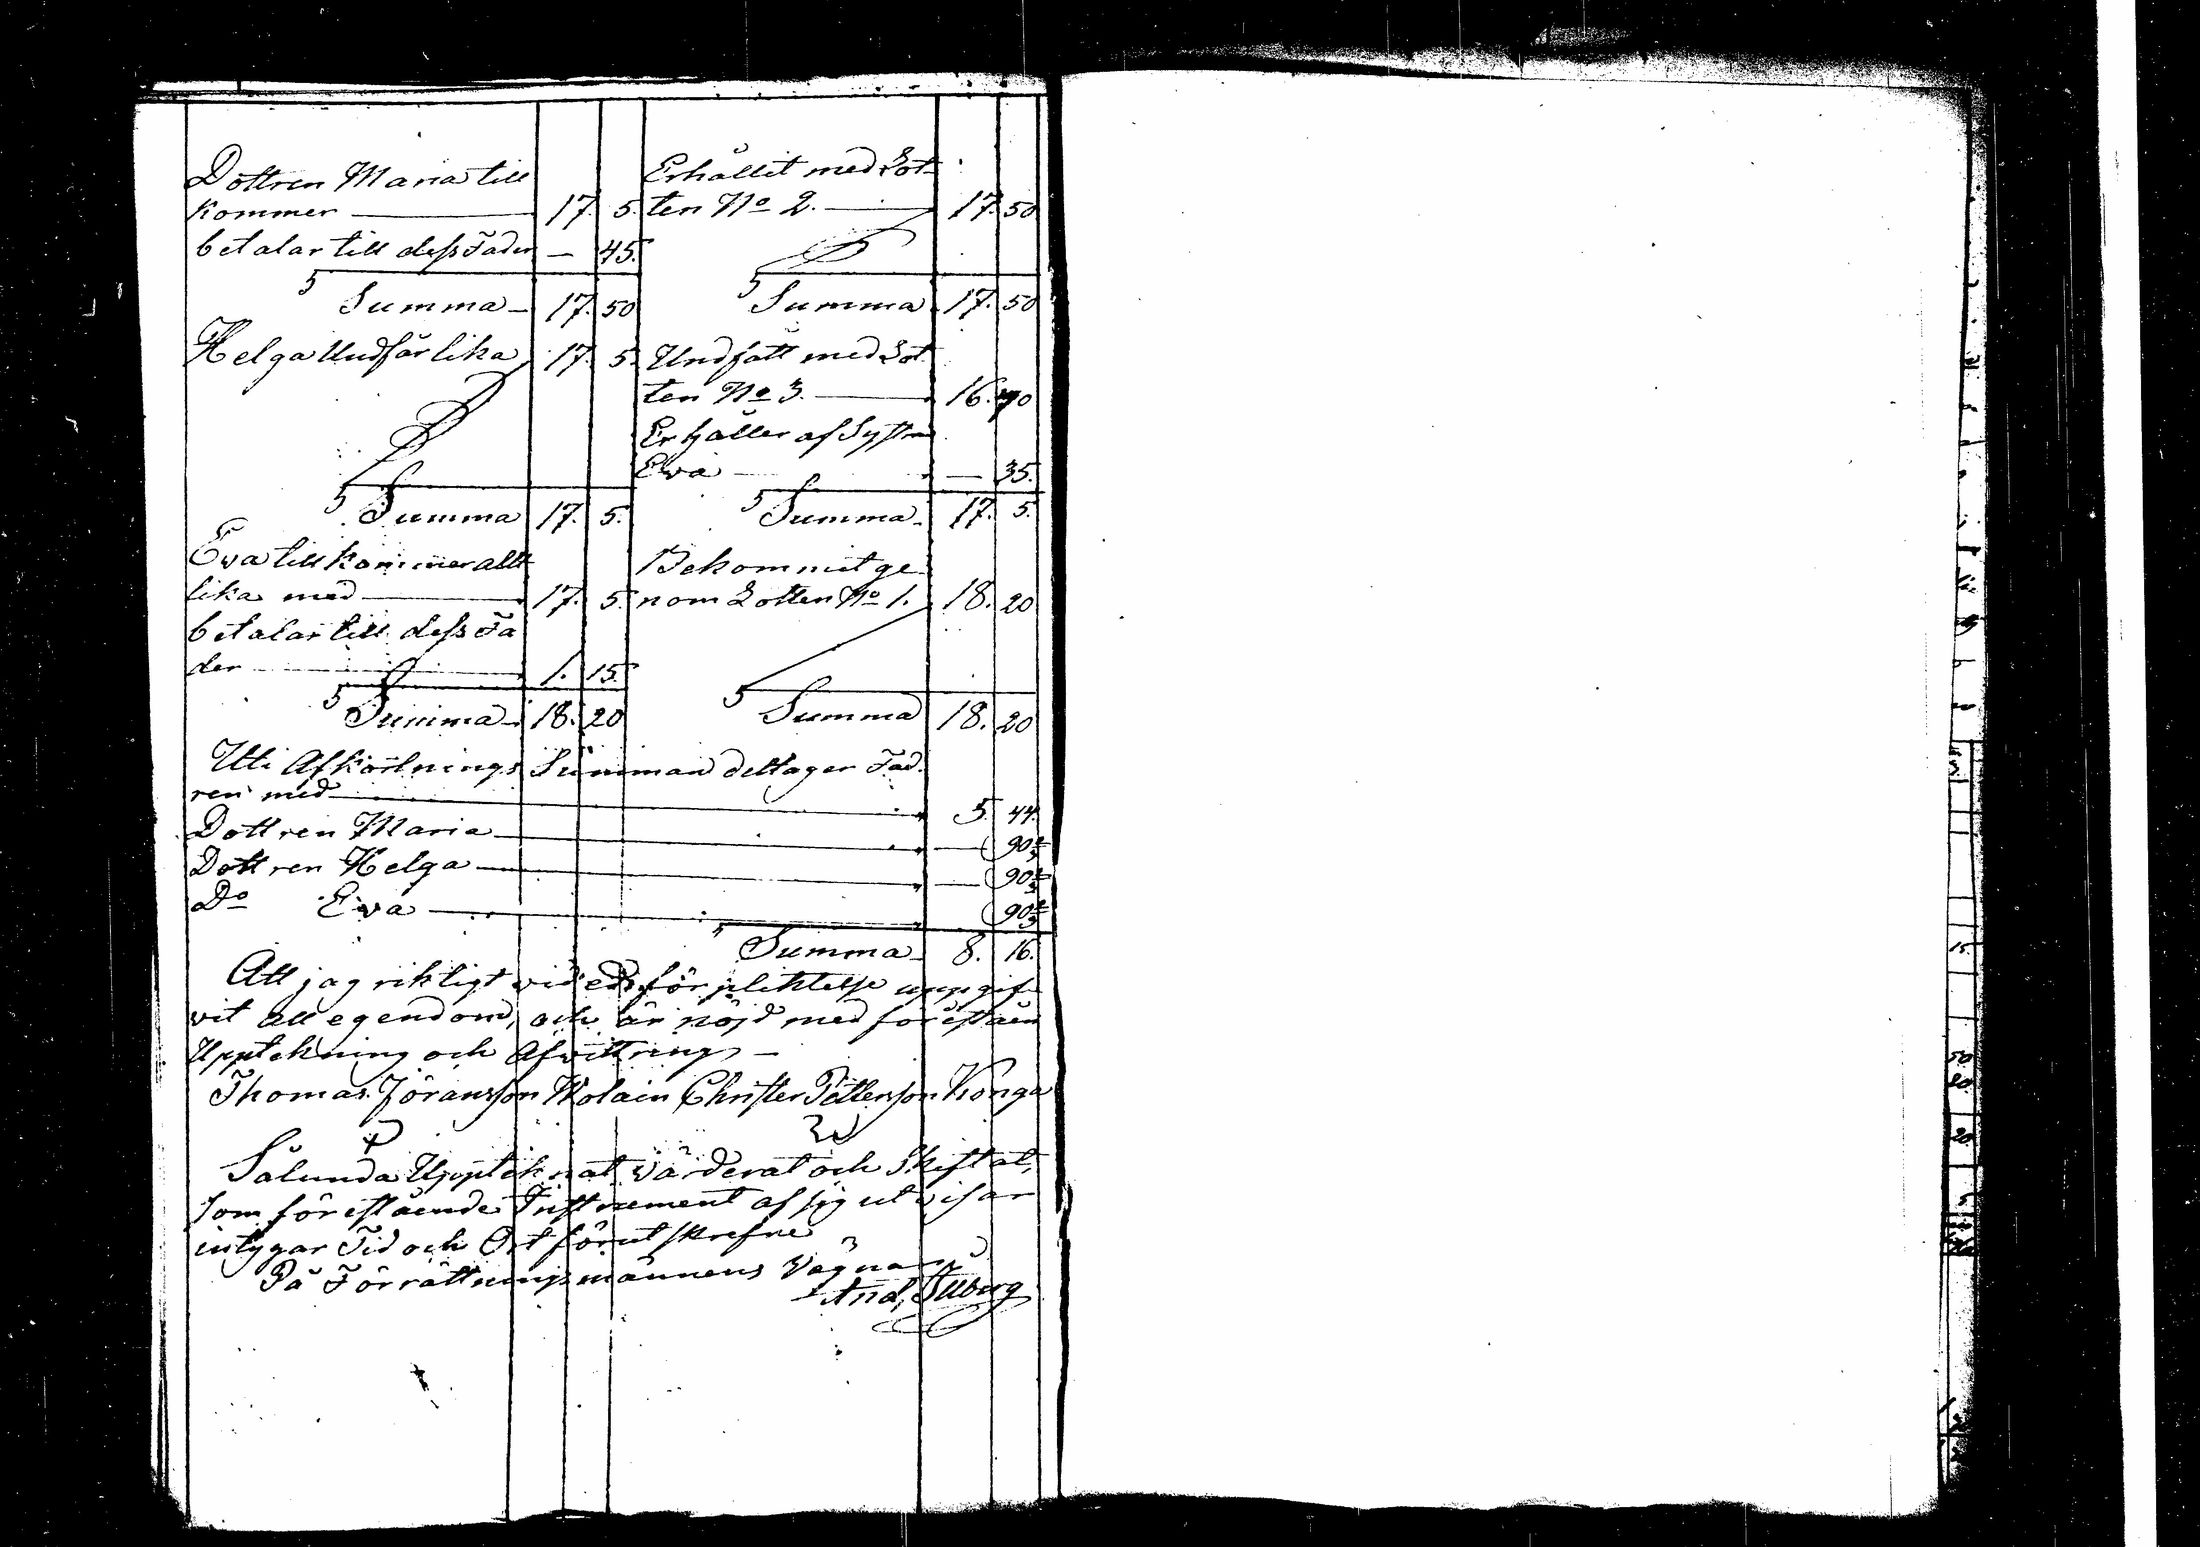 Dottren Maria till
kommer — 17. 5.
betalar till dess Fader — 45.
Summa 17. 50
Erhållit med Lot-
ten No 2. — 17. 50
Summa 17. 50
Helga Undfår lika 17. 5.
Summa 17. 5.
Undfått med Lot
ten No 3. — 16. 70
Erhåller af Systren
Eva — 35.
Summa 17. 5.
Eva tillkommer allt
lika med — 17. 5.
betalar till dess Fa
der — 1. 15.
Summa 18. 20
Bekommit ge
nom Lotten No 1. 18. 20
Summa 18. 20
Uti Afkortnings Summan deltager Fad
ren med — 5. 44.
Dottren Maria — 90 2/3
Dottren Helga — 90 2/3
Do Eva — 90 2/3
Summa 8. 16.
Att jag riktigt vid edsförpliktelse uppgif
vit all egendom, och är nöjd med föreståen
Upptekning och Afvittring —
Thomas Jöransson Christer Pettersson Konga
Sålunda Uppteknat värderat och Skiftat,
som förestående Instrument af sig utvisar
intygar Tid och Ort förutskrefne
På Förrättningsmännens Vägnar
And,